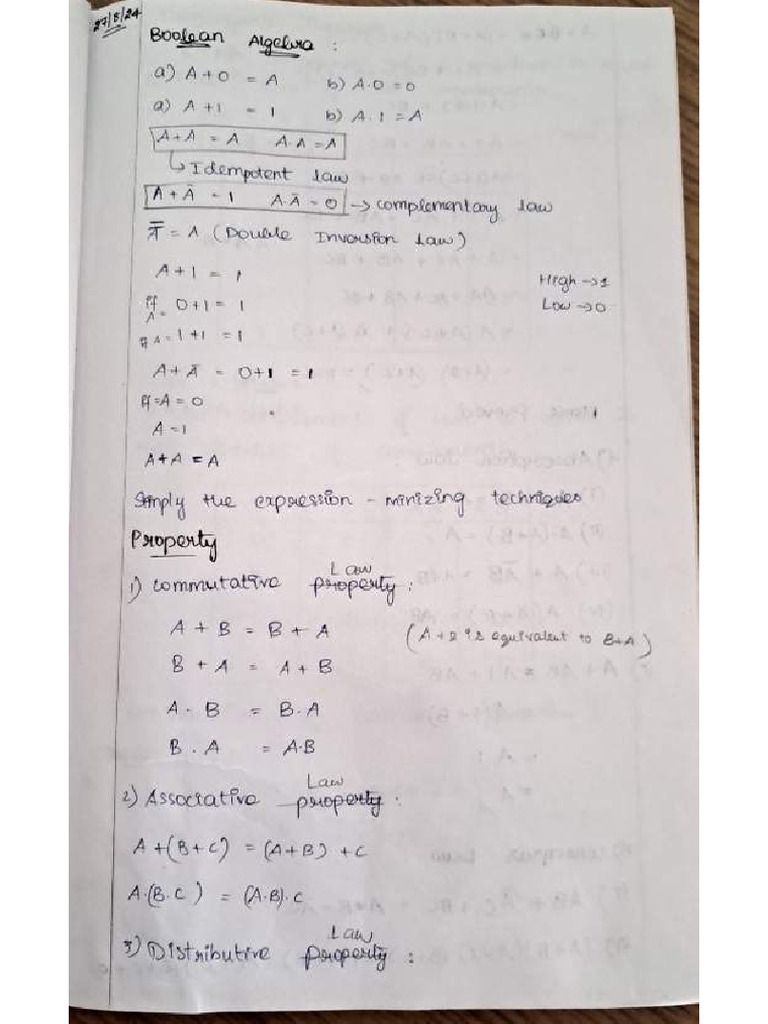 27/8/24
Boolean Algebra :
a) A+0 = A b) A·0 = 0
a) A+1 = 1 b) A·1 = A
A+A = A A·A = A
↳ Idempotent law
A + Ā = 1 A·Ā = 0 → complementary law
A̿ = A (Double Inversion law)
A+1 = 1
High → 1
if A= 0+1 = 1
Low → 0
if A= 1+1 = 1
A+Ā = 0+1 = 1
if A = 0
A = 1
A+A = A
Simply the expression - minizing techniques
Property
1) commutative property Law :
A + B = B + A (A+B is equivalent to B+A)
B + A = A + B
A · B = B·A
B · A = A·B
2) Associative property Law :
A+(B+C) = (A+B) +C
A·(B·C) = (A·B)·C
3) Distributive property Law :